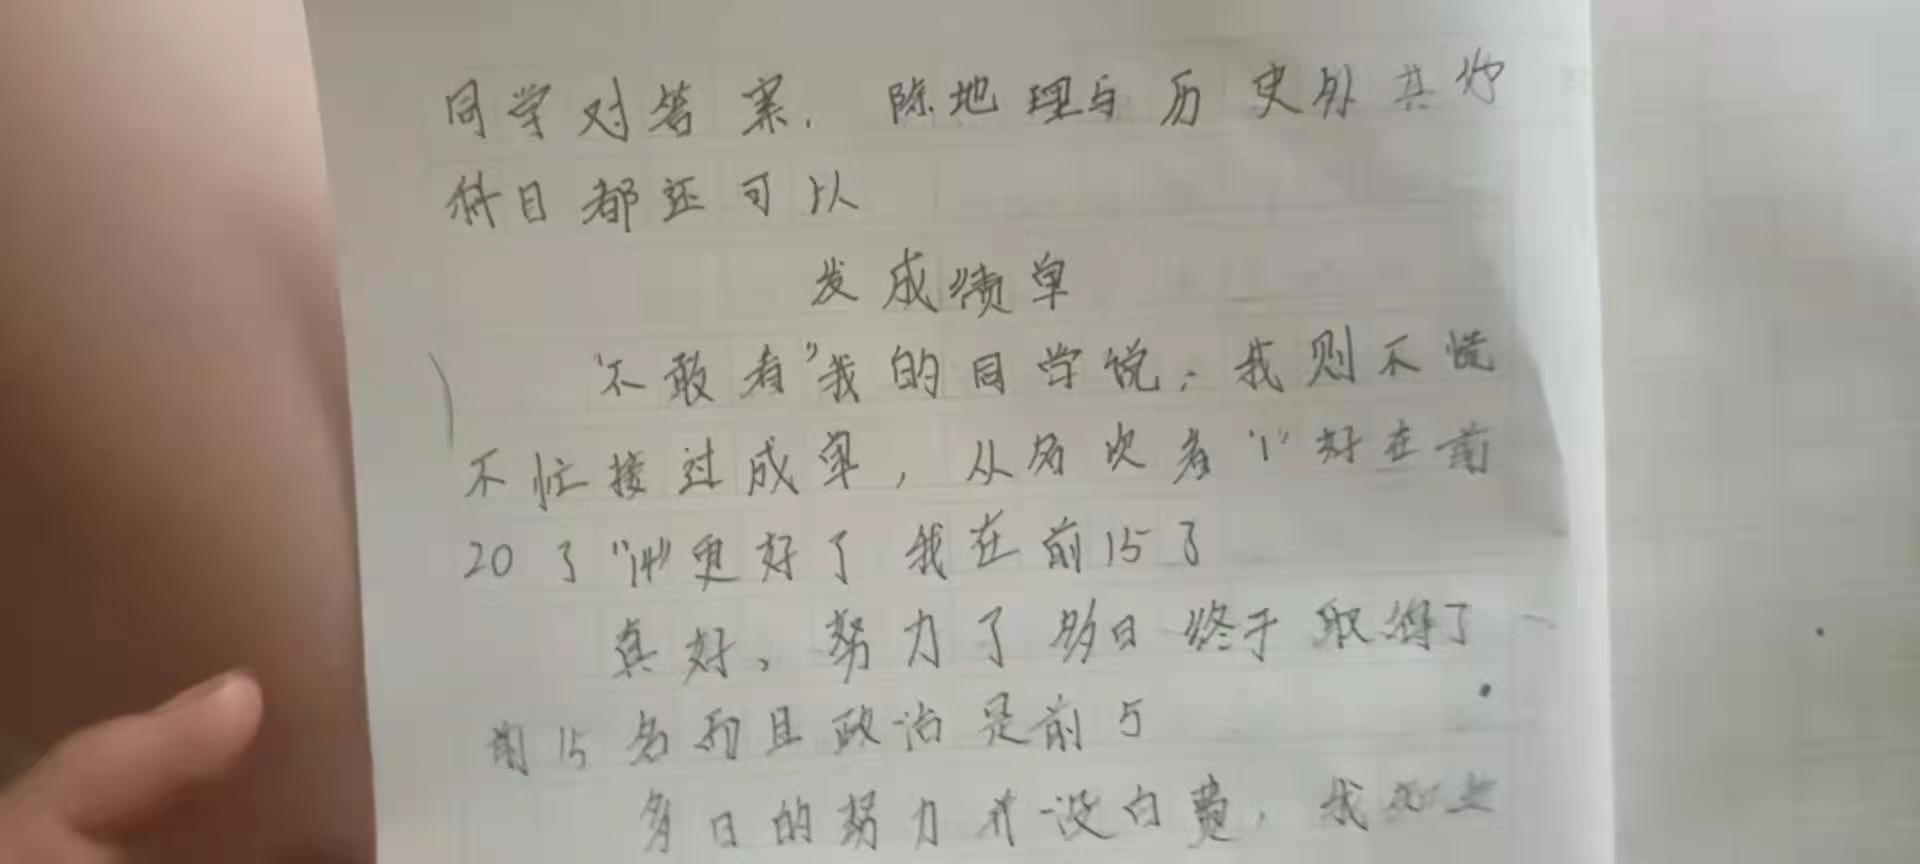 同学对答案. 除地理与历史外其它
科目都还可以
发成绩单
"不敢看"我的同学说, 我则不慌
不忙接过成单, 从名次看"1"好在前
20了"14"更好了 我在前15了
真好, 努力了多日终于取得了
前15名而且政治是前5
多日的努力并没白费, 我